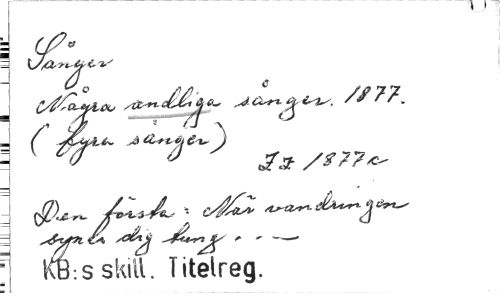 Sånger
Några andliga sånger. 1877.
(fyra sånger)
1877c
Den första: När vandringen
synes dig tung . . —
KB:s skill. Titelreg.